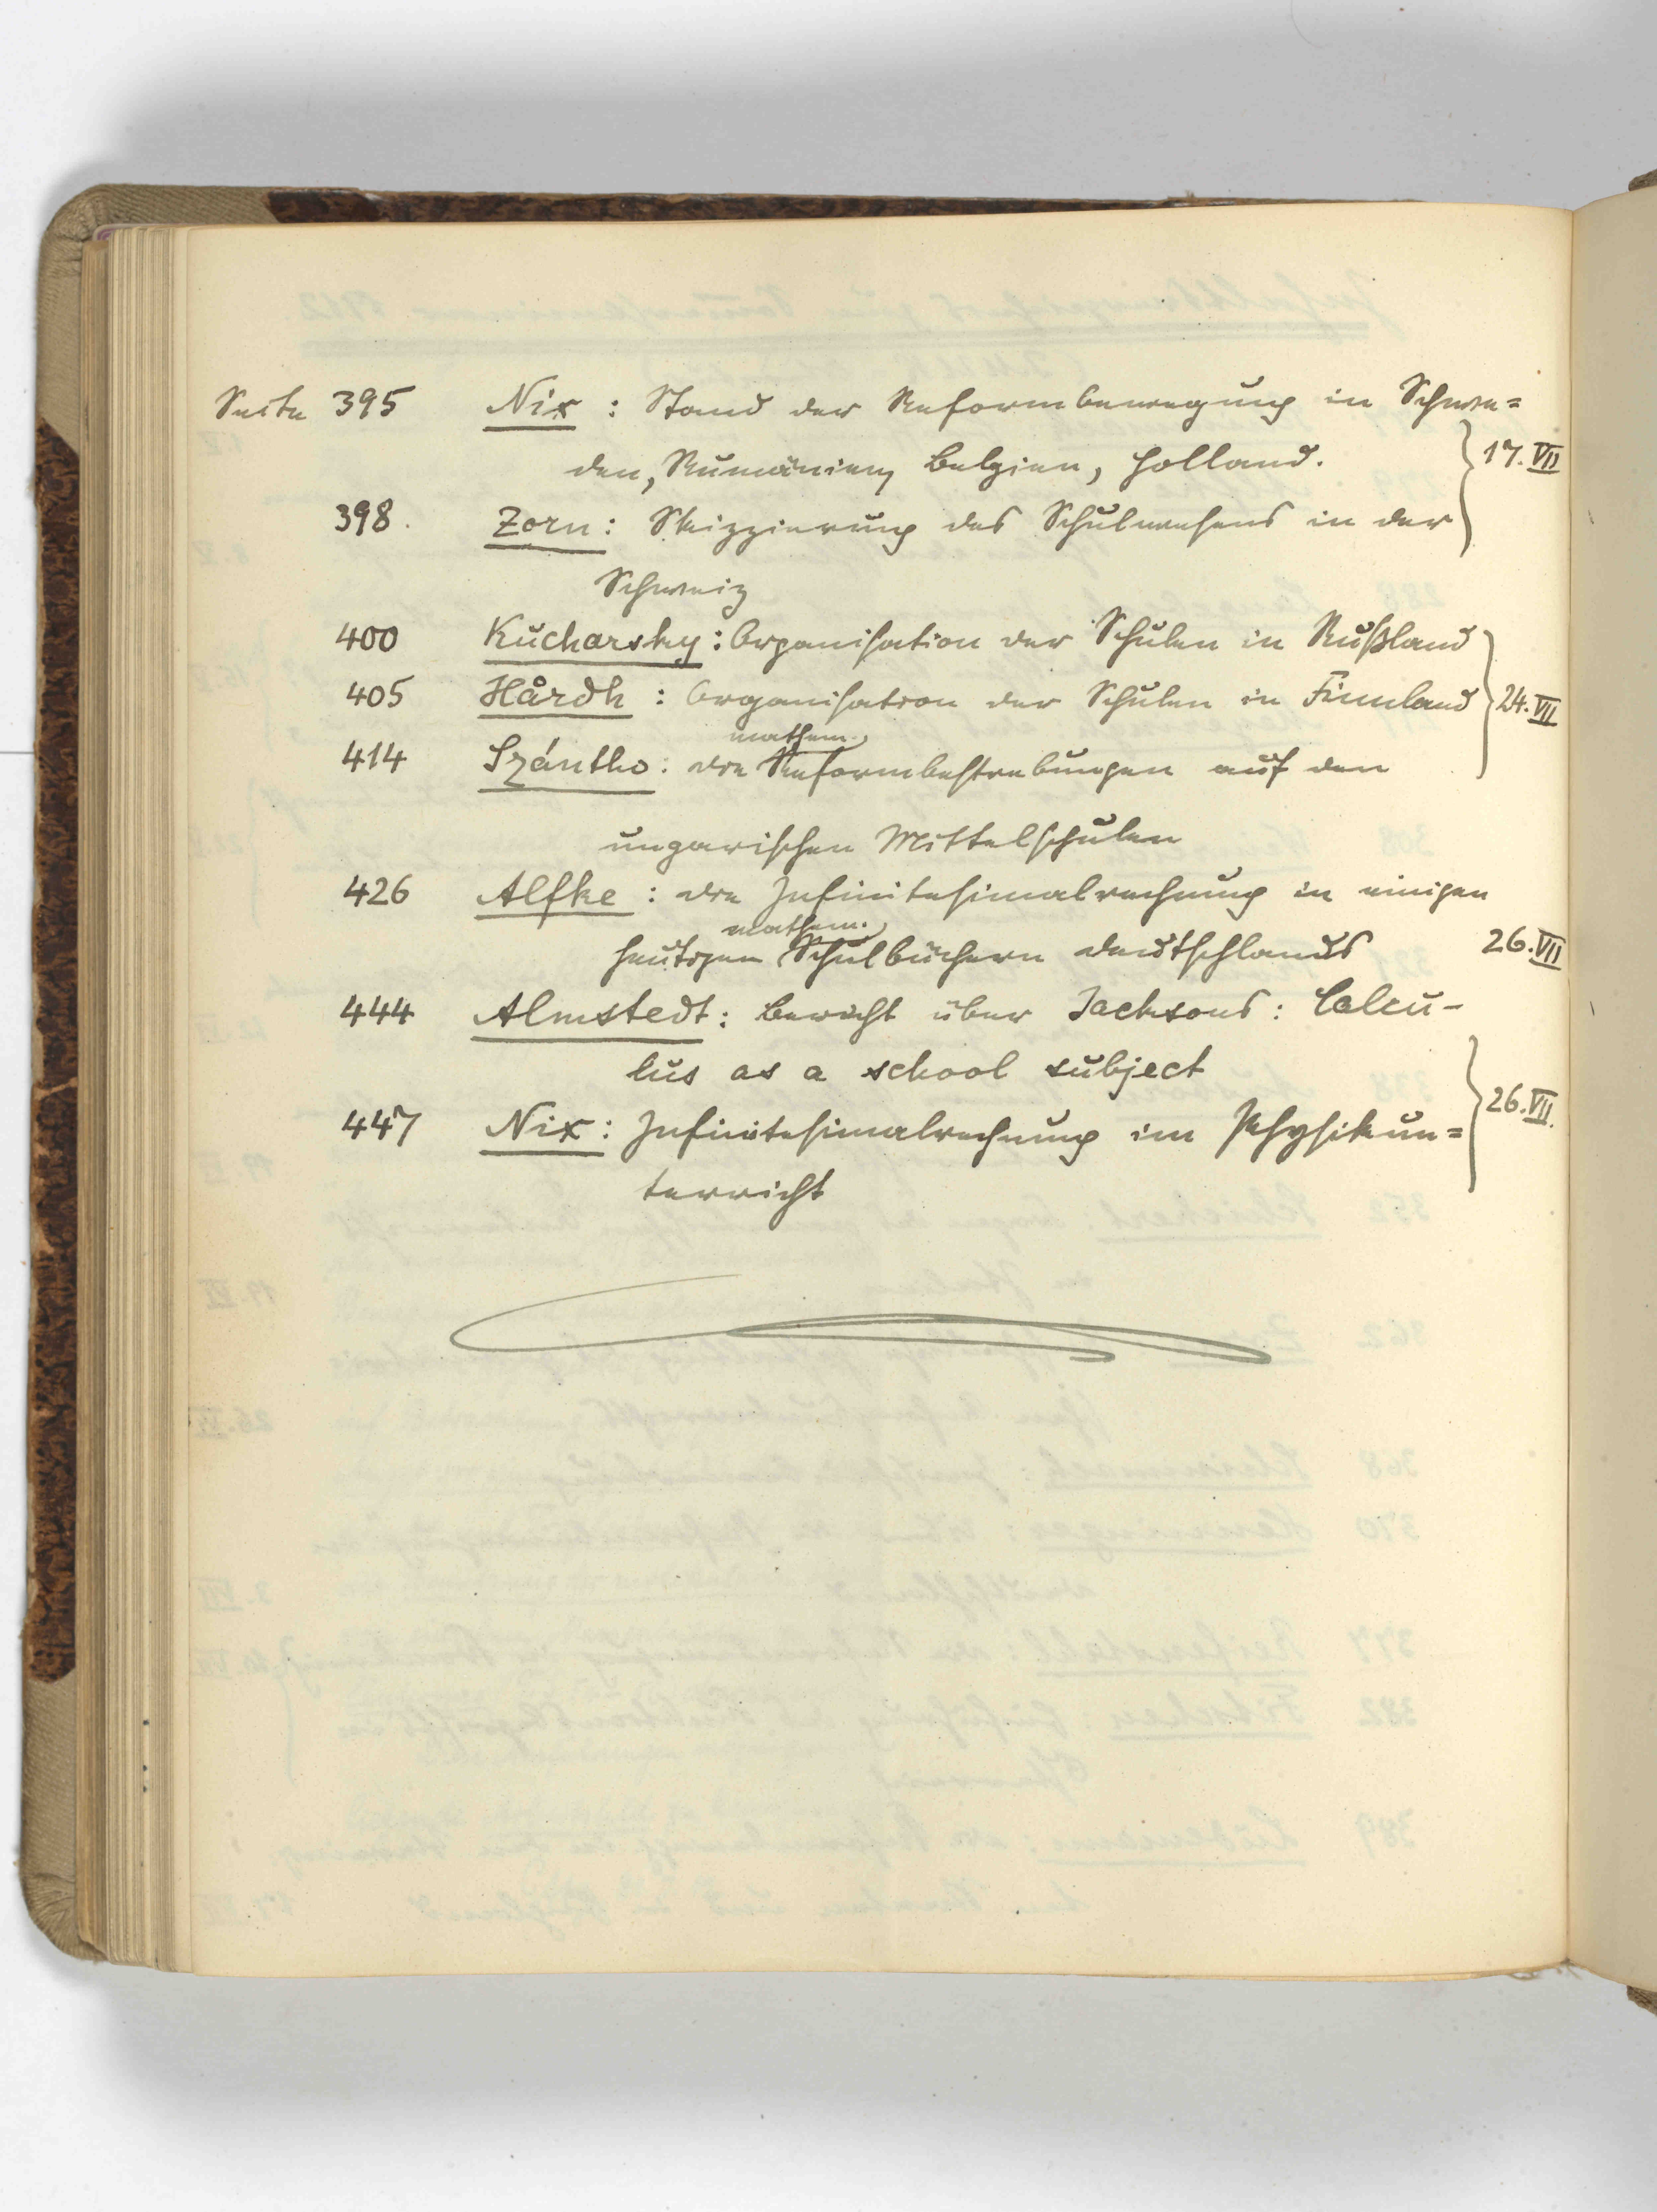 Seite 395 Nix : Stand der Reformbewegung in Schwe=
den, Rumänien, Belgien, Holland. 17. VII
398. Zorn : Skizzierung des Schulwesens in der
Schweiz
400 Kucharsky : Organisation der Schulen in Rußland
405 Hårdh : Organisation der Schulen in Finnland 24. VII
mathem.
414 Szántho : die Reformbestrebungen auf den
ungarischen Mittelschulen
426 Alfke : die Infinitesimalrechnung in einigen
mathem.
heutigen Schulbüchern Deutschlands 26. VII
444 Almstedt : Bericht über Jacksons : Calcu-
lus as a school subject
447 Nix : Infinitesimalrechnung im Physikun= 26. VII.
terricht